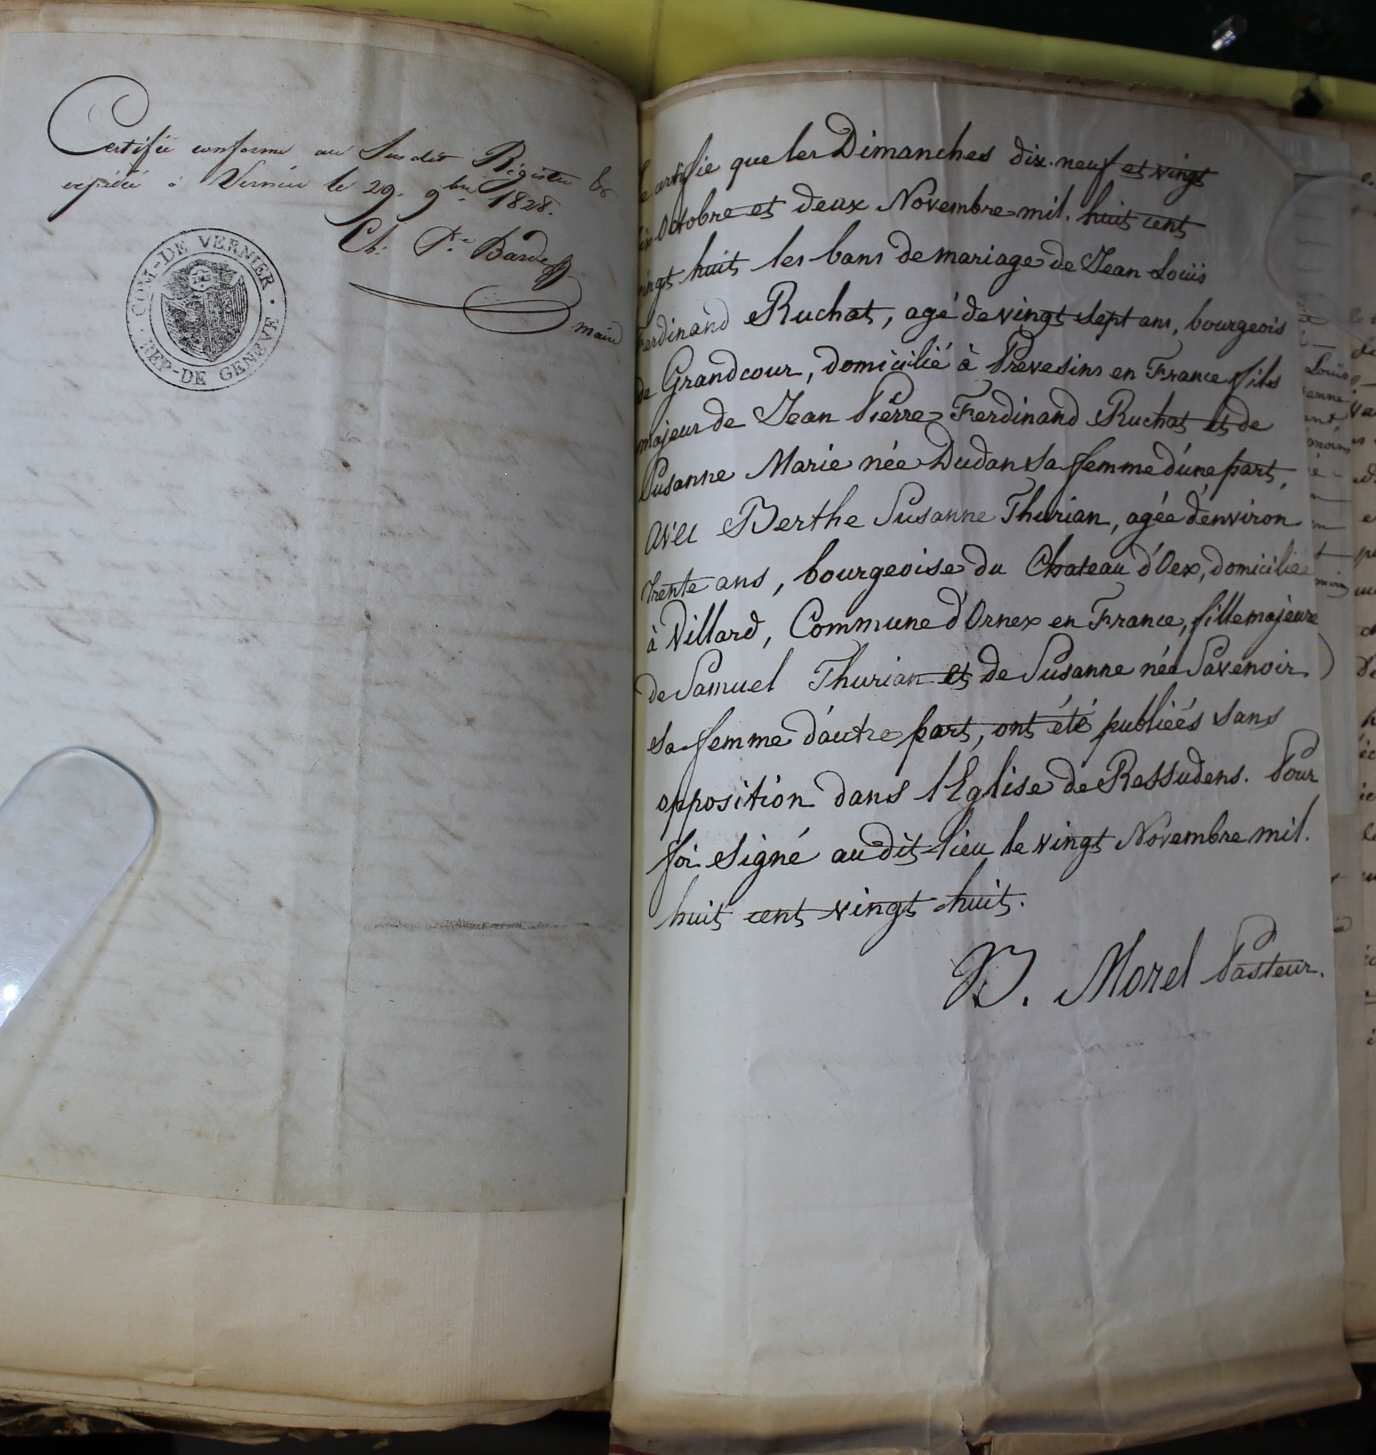 Certifié conforme au Susdit Régistre &
expédié à Vernier le 29. 9bre 1828.
Ch. Bardet
maire
COM-DE VERNIER
DEP-DE GENEVE
Je certifie que les Dimanches dix-neuf et vingt
six Octobre et deux Novembre mil. huit cent
vingt huit les bans de mariage de Jean Louis
Ferdinand Ruchat, agé de vingt sept ans, bourgeois
de Grandcour, domicilié à Prevesins en France fils
majeur de Jean Pierre Ferdinand Ruchat et de
Susanne Marie née Dudan sa femme d'une part,
avec Berthe Susanne Thurian, agée d'environ
trente ans, bourgeoise du Chateau d'Oex, domiciliée
à Villard, Commune d'Ornex en France, fille majeure
de Samuel Thurian et de Susanne née Savenoir
sa femme d'autre part, ont été publiéés sans
opposition dans l'Eglise de Ressudens. Pour
foi signé au dit lieu le vingt Novembre mil.
huit cent vingt huit.
Morel Pasteur.